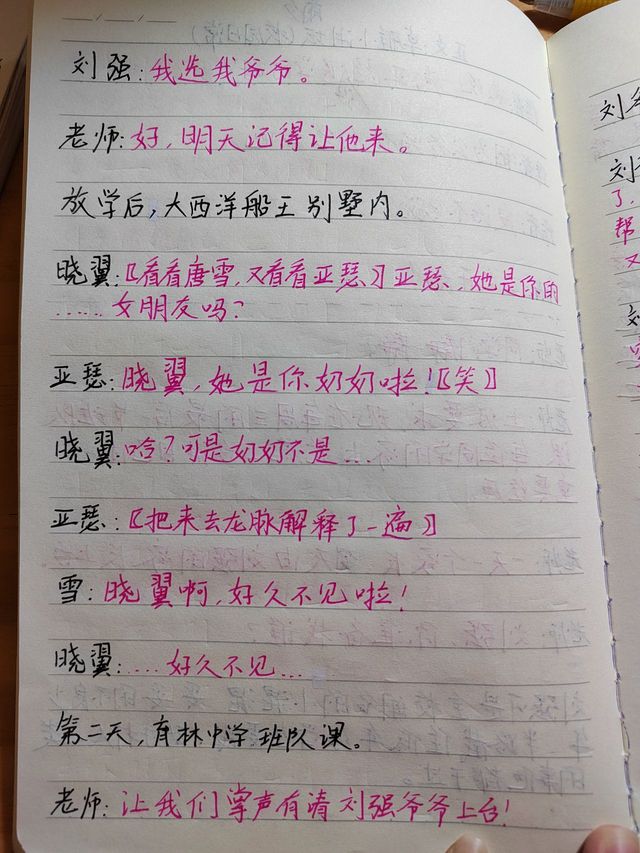 刘强:我选我爷爷。
老师:好,明天记得让他来。
放学后,大西洋船王别墅内。
晓翼:〖看看唐雪,又看看亚瑟〗亚瑟、她是你的
……女朋友吗?
亚瑟:晓翼,她是你奶奶啦!〖笑〗
晓翼:哈?可是奶奶不是...
亚瑟:〖把来去龙脉解释了一遍〗
雪:晓翼啊,好久不见啦!
晓翼:....好久不见...
第二天,育林中学班队课。
老师:让我们掌声有请刘强爷爷上台!
刘
刘
了.
帮
又